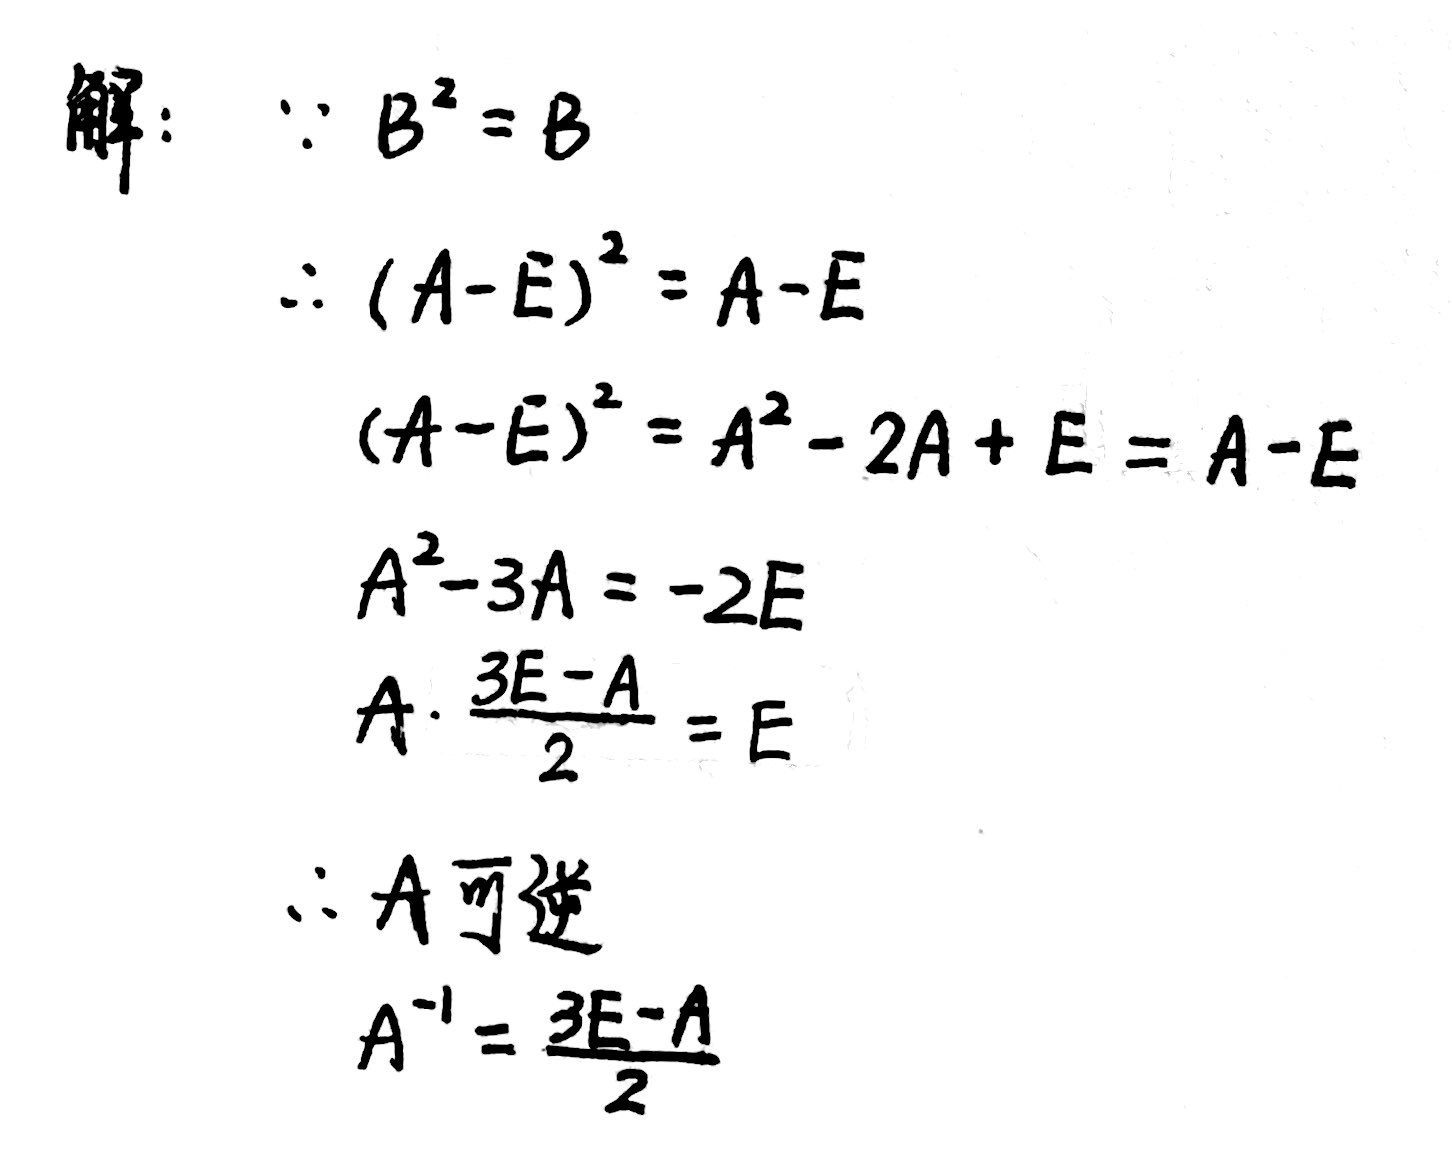 解: ∵ B² = B
∴ (A-E)² = A-E
(A-E)² = A² - 2A + E = A-E
A² - 3A = -2E
A · \frac{3E-A}{2} = E
∴ A 可逆
A⁻¹ = \frac{3E-A}{2}